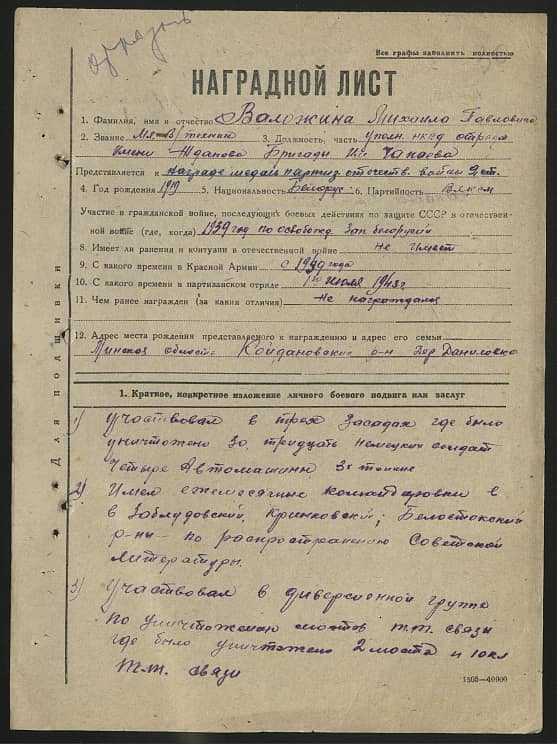 образец
Все графы заполнить полностью
НАГРАДНОЙ ЛИСТ
1. Фамилия, имя и отчество Воложина Михаила Павловича
2. Звание Мл В/техник 3. Должность, часть уполн. НКВД отряда
имени Жданова Бригады им Чапаева
Представляется к награде медаль партиз. отечеств. войны 2 ст.
4. Год рождения 1919 5. Национальность Белорус 6. Партийность Влксм
Участие в гражданской войне, последующих боевых действиях по защите СССР в отечествен-
ной войне (где, когда) 1939 год по освобожд. Зап. Белорусии
8. Имеет ли ранения и контузии в отечественной войне не имеет
9. С какого времени в Красной Армии с 1940 года
10. С какого времени в партизанском отряде 1го июля 1943 г
11. Чем ранее награжден (за какия отличия) Не награждался
12. Адрес места рождения представляемого к награждению и адрес его семьи
Минская область Койдановский р-н дер Даниловка
Для подшивки
1. Краткое, конкретное изложение личного боевого подвига или заслуг
1) участвовал в трех засадах где было
уничтожено 30, тридцать немецких солдат
Четыре Автомашины 3х тонные
2) Имел ежемесячные командировки в
в Заблудовский, Кринковский; Белостокский
р-ны - по распространению Советской
литературы.
3) участвовал в диверсионной группе
по уничтожению мостов т.т. связи
где было уничтожено 2 моста и 10 кл
т.т. связи
1505—40000